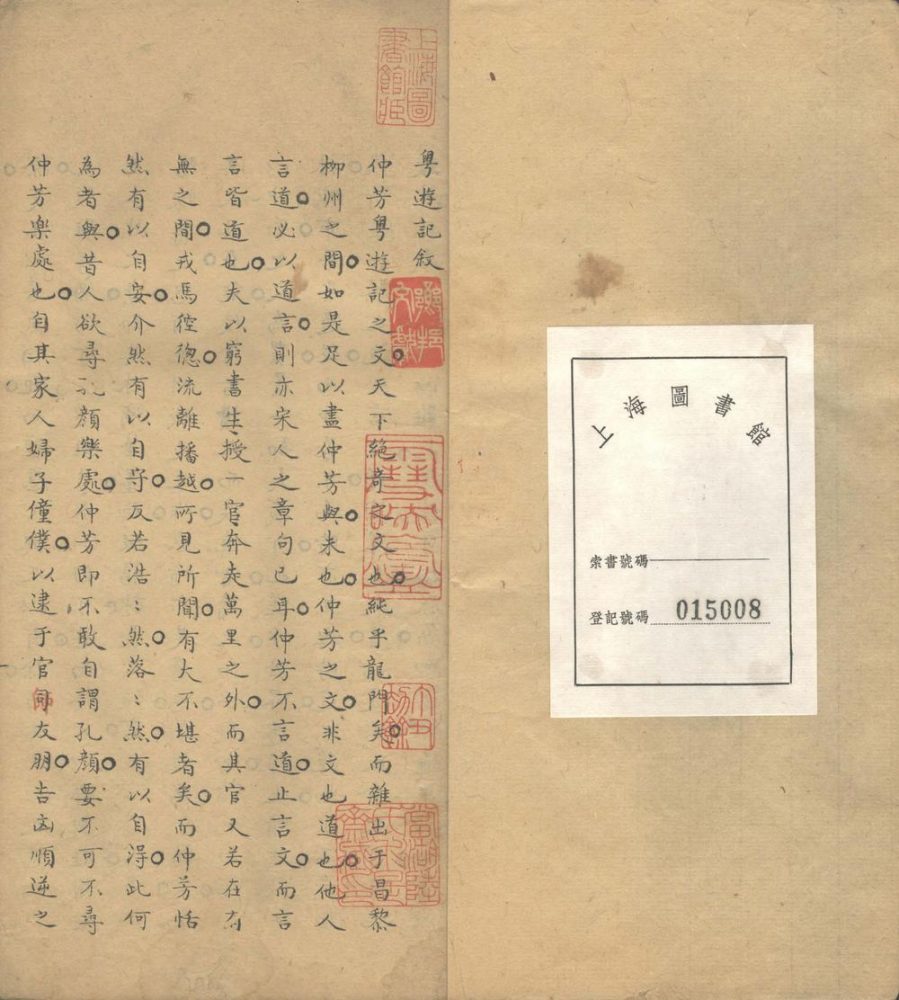 上海圖書館
索書號碼
登記號碼 015008
上海圖書館藏
粤遊記敘
仲芳粤遊記之文天下絕奇之文也純乎龍門矣而雜出于昌黎
柳州之間如是足以盡仲芳與未也仲芳之文非文也道也他人
言道必以道言則亦宋人之章句已耳仲芳不言道止言文而言
言皆道也夫以窮書生授一官奔走萬里之外而其官又若在有
無之間戎馬倥傯流離播越所見所聞有大不堪者矣而仲芳恬
然有以自安介然有以自守反若浩：然落：然有以自得此何
為者與昔人欲尋孔顏樂處仲芳即不敢自謂孔顏要不可不尋
仲芳樂處也自其家人婦子僮僕以逮于官司友朋吉凶順逆之